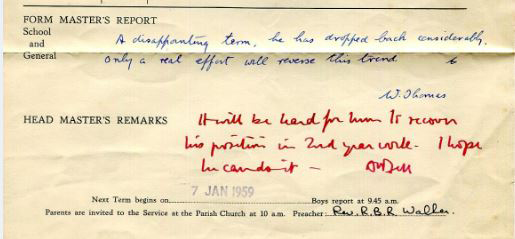 FORM MASTER'S REPORT
School
and
General
A disappointing term, he has dropped back considerably.
Only a real effort will reverse this trend 6
W. Thomas
HEAD MASTER'S REMARKS
It will be hard for him to recover
his position in 2nd year work. I hope
he can do it —
7 JAN 1959
Next Term begins on Boys report at 9.45 a.m.
Parents are invited to the Service at the Parish Church at 10 a.m. Preacher: Rev. R.B.R. Walker.